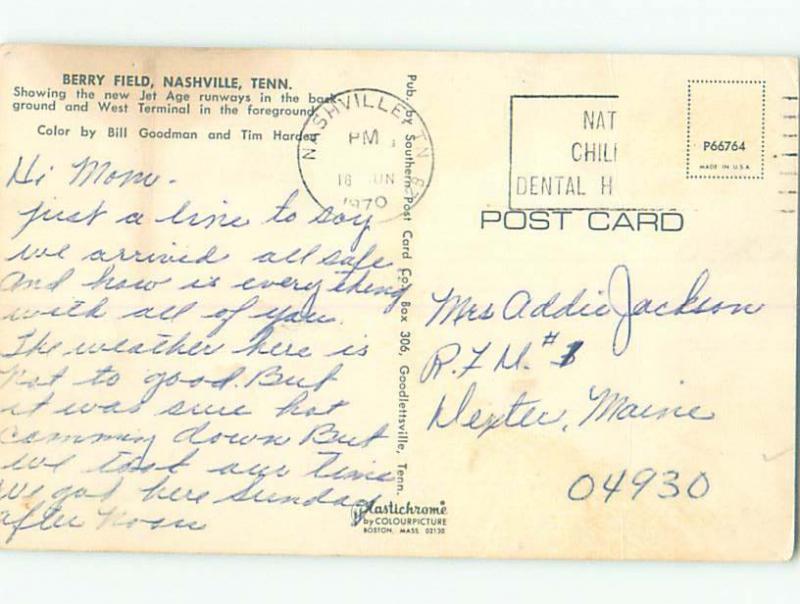 BERRY FIELD, NASHVILLE, TENN.
Showing the new Jet Age runways in the back-
ground and West Terminal in the foreground.
Color by Bill Goodman and Tim Harden
Hi Mom -
just a line to say
we arrived all safe
and how is everything
with all of you.
The weather here is
Not to good. But
it was sure hot
comming down But
we took our time
we got here Sunday
after noon
Pub. by Southern Post Card Co., Box 306, Goodlettsville, Tenn.
Plastichrome
by COLOURPICTURE
BOSTON, MASS. 02130
NASHVILLE TN
PM
16 JUN
1970
NAT
CHIL
DENTAL H
P66764
MADE IN U.S.A
POST CARD
Mrs Addie Jackson
R.F.D. #1
Dexter, Maine
04930